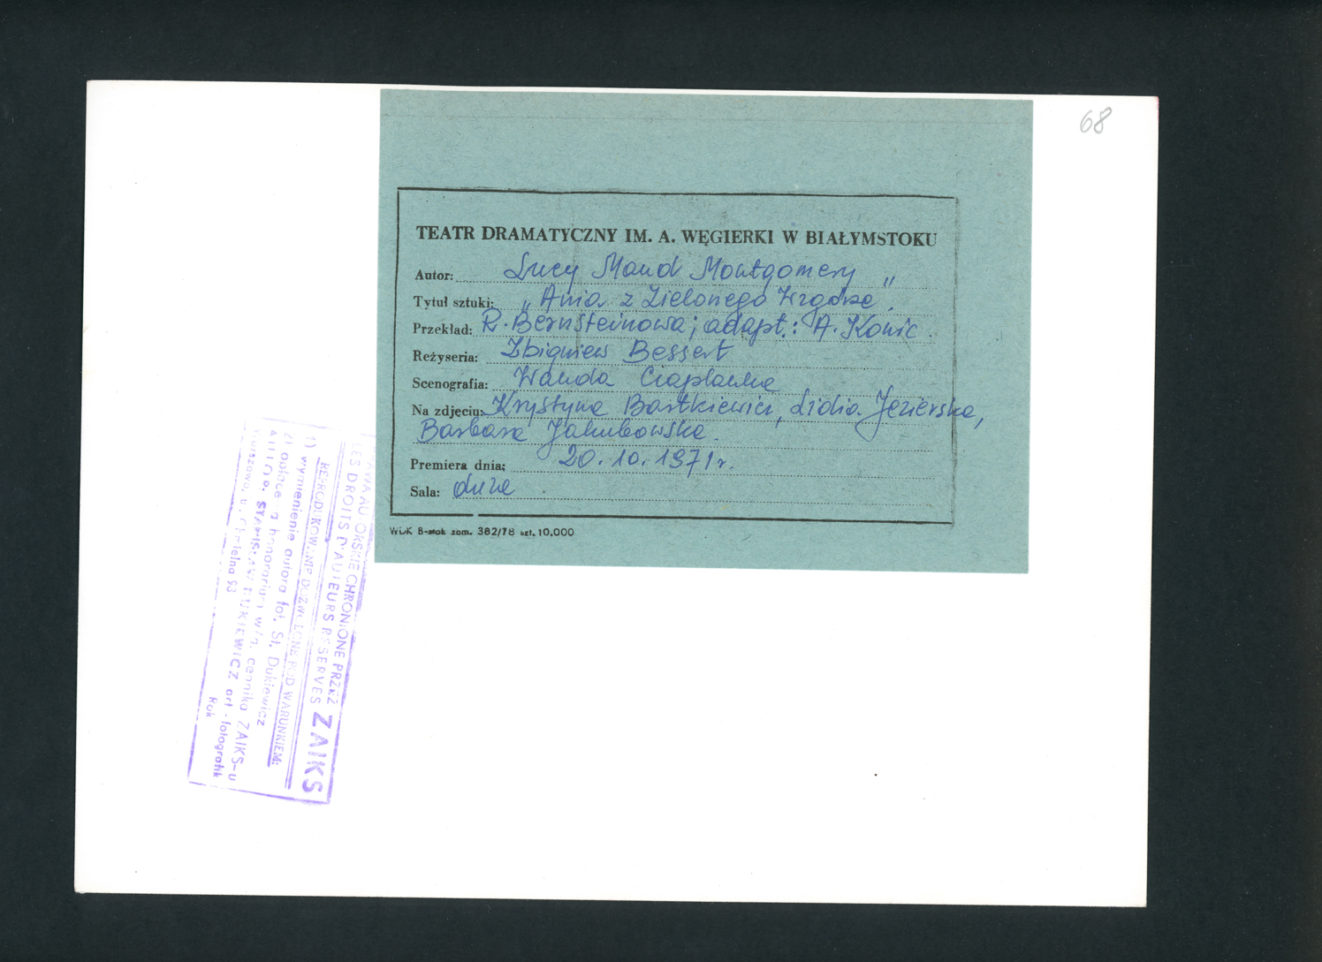 68
TEATR DRAMATYCZNY IM. A. WĘGIERKI W BIAŁYMSTOKU
Autor: Lucy Maud Montgomery
Tytuł sztuki: „Ania z Zielonego Wzgórza".
Przekład: R. Bernsteinowa; adapt.: A. Konic.
Reżyseria: Zbigniew Bessert
Scenografia: Wanda
Na zdjęciu: Krystyna Bartkiewicz, Lidia Jezierska,
Barbara Jakubowska.
Premiera dnia: 20.10.1971 r.
Sala: duża.
WDK B-stok zam. 382/78 szt. 10.000
AUTORSKIE CHRONIONE PRZEZ
LES DROITS D'AUTEURS RESERVES ZAIKS
REPRODUKOWANIE DOZWOLONE POD WARUNKIEM:
1) wymienienie autora fot. St. Dukiewicz
2) opłacenia honorarium w/g. cennika ZAIKS-u
STANISŁAW DUKIEWICZ art.-fotografik
Warszawa, ul. Chmielna 93 Rok